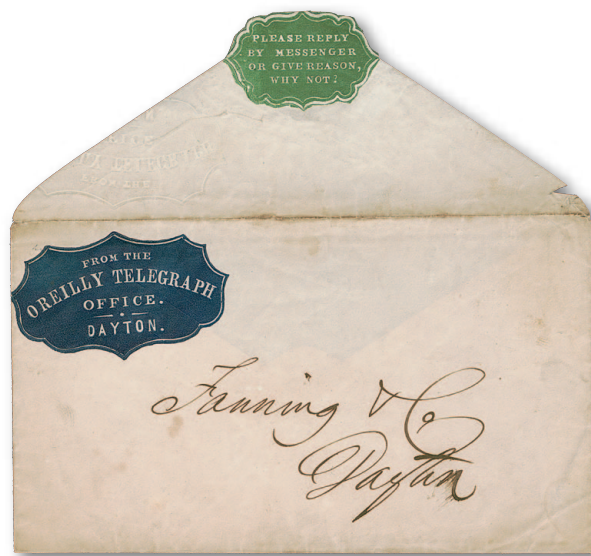 PLEASE REPLY
BY MESSENGER
OR GIVE REASON,
WHY NOT?
FROM THE
OREILLY TELEGRAPH
OFFICE.
DAYTON.
Fanning & Co
Dayton